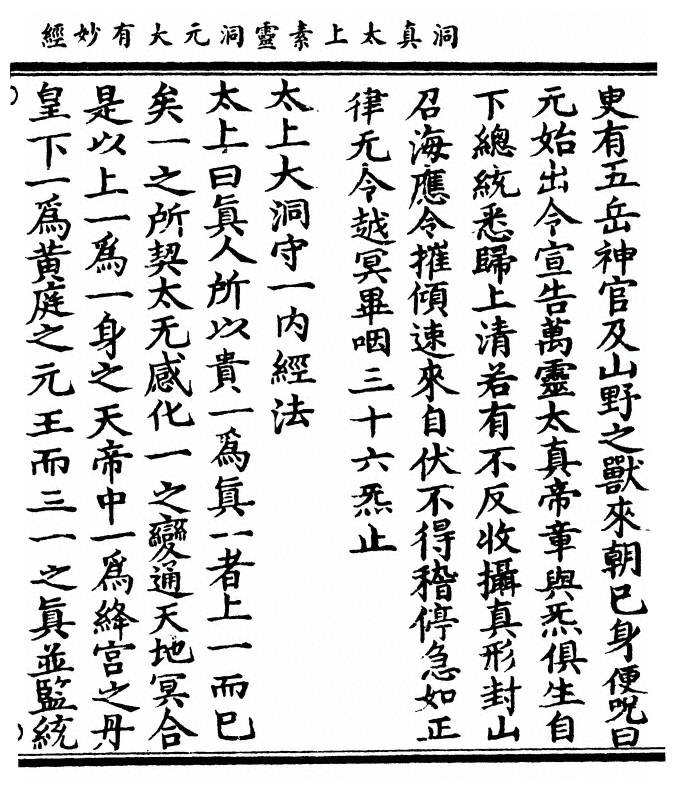 洞真太上素靈洞元大有妙經
更有五岳神官及山野之獸來朝已身便呪曰
元始出令宣告萬靈太真帝章與炁俱生自
下總統悉歸上清若有不反收攝真形封山
召海應令摧傾速來自伏不得稽停急如正
律无令越冥畢咽三十六炁止
太上大洞守一內經法
太上曰真人所以貴一爲真一者上一而已
矣一之所契太无感化一之變通天地冥合
是以上一爲一身之天帝中一爲絳宮之丹
皇下一爲黃庭之元王而三一之真並監統